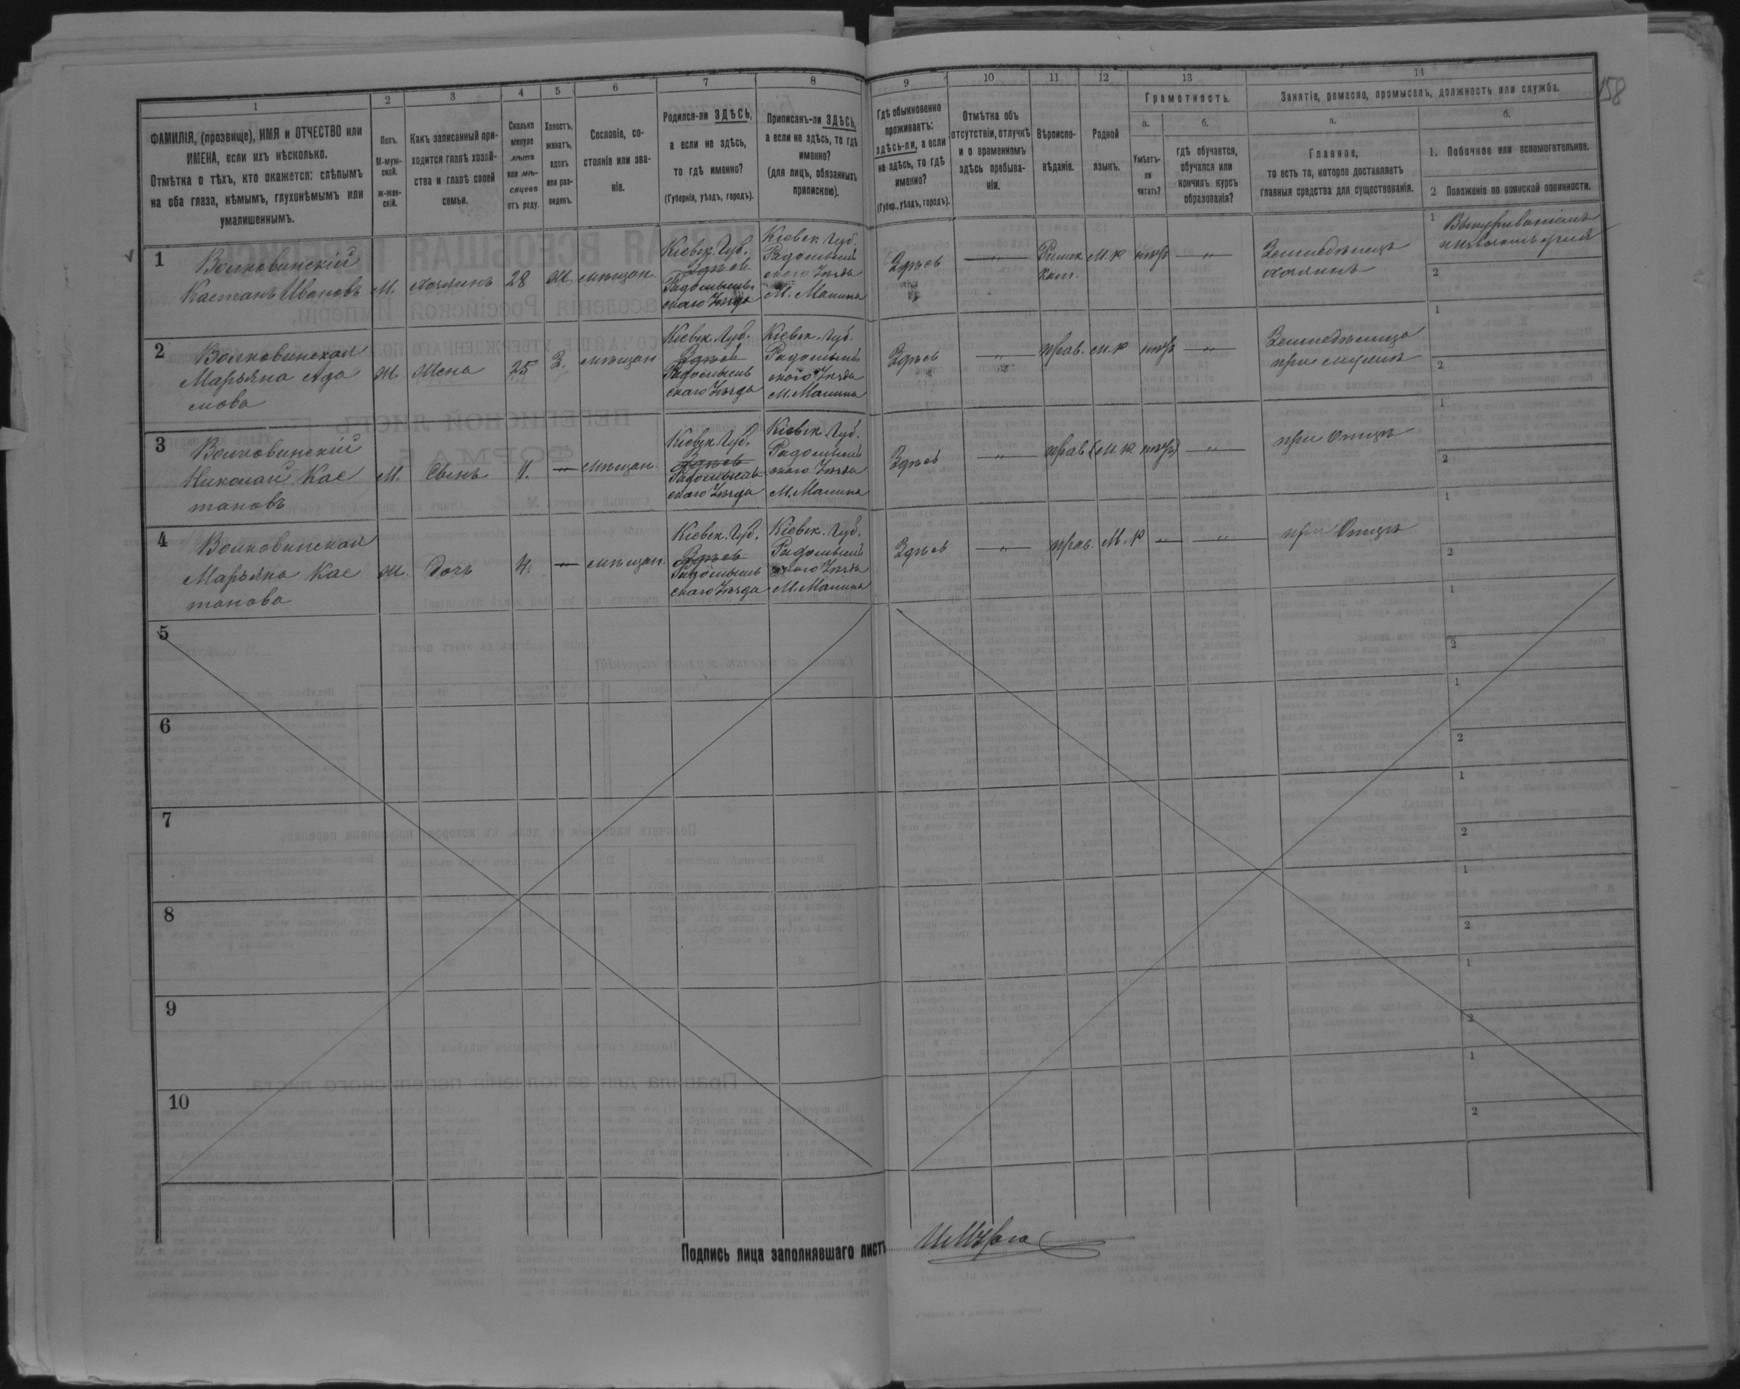 158
1
2
3
4
5
6
7
8
9
10
11
12
13
14
ФАМИЛІЯ, (прозвище), ИМЯ и ОТЧЕСТВО или
ИМЕНА, если ихъ нѣсколько.
Отмѣтка о тѣхъ, кто окажется: слѣпымъ
на оба глаза, нѣмымъ, глухонѣмымъ или
умалишеннымъ.
Полъ.
М-муж-
ской.
ж-жен-
скій.
Какъ записанный при-
ходится главѣ хозяй-
ства и главѣ своей
семьи.
Сколько
минуло
лѣтъ
или мѣ-
сяцевъ
отъ роду.
Холостъ,
женатъ,
вдовъ
или раз-
веденъ.
Сословіе, со-
стояніе или зва-
ніе.
Родился-ли ЗДѢСЬ,
а если не здѣсь,
то гдѣ именно?
(Губернія, уѣздъ, городъ).
Приписанъ-ли ЗДѢСЬ,
а если не здѣсь, то гдѣ
именно?
(для лицъ, обязанныхъ
припискою).
Гдѣ обыкновенно
проживаетъ:
здѣсь-ли, а если
не здѣсь, то гдѣ
именно?
(Губер., уѣздъ, городъ).
Отмѣтка объ
отсутствіи, отлучкѣ
и о временномъ
здѣсь пребыва-
ніи.
Вѣроиспо-
вѣданіе.
Родной
языкъ.
Грамотность.
а.
Умѣетъ-
ли
читать?
б.
гдѣ обучается,
обучался или
кончилъ курсъ
образованія?
Занятіе, ремесло, промыселъ, должность или служба.
а.
Главное,
то есть то, которое доставляетъ
главныя средства для существованія.
б.
1. Побочное или вспомогательное.
2 Положеніе по воинской повинности.
1
Волковинскій
Кастанъ Ивановъ
М.
хозяинъ
28
Ж
мѣщан.
Кіевск. Губ.
Здѣсь
Радомысль-
скаго Уѣзда
Кіевск. Губ.
Радомысль
скаго Уѣзда
М. Малина
Здѣсь
Римск.
Кат.
М. р
хозяинъ
1
2
2
Волковинская
Марьяна Ада
мова
Ж.
Жена
25
З.
мѣщан
Кіевск. Губ.
Здѣсь
Радомысль
скаго Уѣзда
Кіевск. Губ.
Радомысль
скаго Уѣзда
М. Малина
Здѣсь
"
прав.
М. р
"
при мужѣ
1
2
3
Волковинскій
Николай Кас
тановъ
М.
Сынъ
мѣщан.
Кіевск. Губ.
Здѣсь
Радомысль
скаго Уѣзда
Кіевск. Губ.
Радомысль
скаго Уѣзда
М. Малина
Здѣсь
"
прав.
М. р
"
при Отцѣ
1
2
4
Волковинская
Марьяна Кас
танова
Ж.
Дочь
мѣщан.
Кіевск. Губ.
Здѣсь
Радомысль
скаго Уѣзда
Кіевск. Губ.
Радомысль
скаго Уѣзда
М. Малина
Здѣсь
"
прав.
М. р
"
при Отцѣ
1
2
5
1
2
6
1
2
7
1
2
8
1
2
9
1
2
10
1
2
Подпись лица заполнявшаго листъ